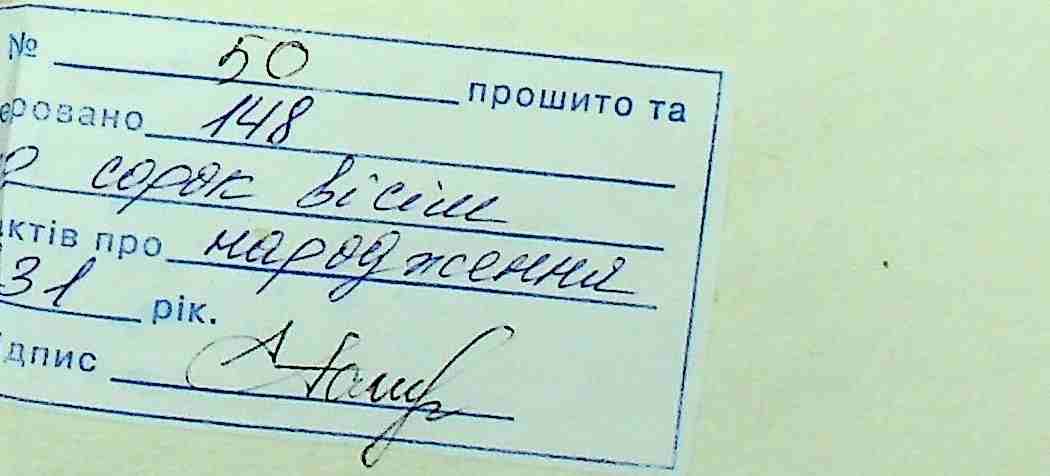 № 50 прошито та
еровано 148
о сорок вісім
ктів про народження
31 рік.
дпис